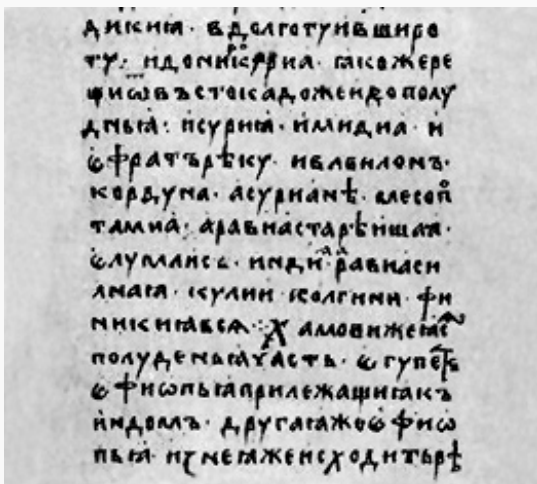 дикиꙗ · в долготуи в широ
ту · и до никⷬ҇ѻриа · ꙗкоже ре
щиѡ въстока дожендо полу
дньꙗ : и суриꙗ · и мидиа · и
ѥфратъ рѣку · и вавилонъ ·
кордуна · асурианѣ · месопⷪ
тамиа · аравиа старѣишаꙗ ·
ѥлумаисъ · индиⷶ равиа си
лнаꙗ · кулии · колгини · фи
никиꙗ всѧ : хамови же ꙗсⷮ
полуденьꙗ часть · ѥгупетⷭ
ѥфиѡпьꙗ прилежащиꙗ къ
индомъ · другаꙗ же ѥфиѡ
пьꙗ · из неꙗже исходить рѣ